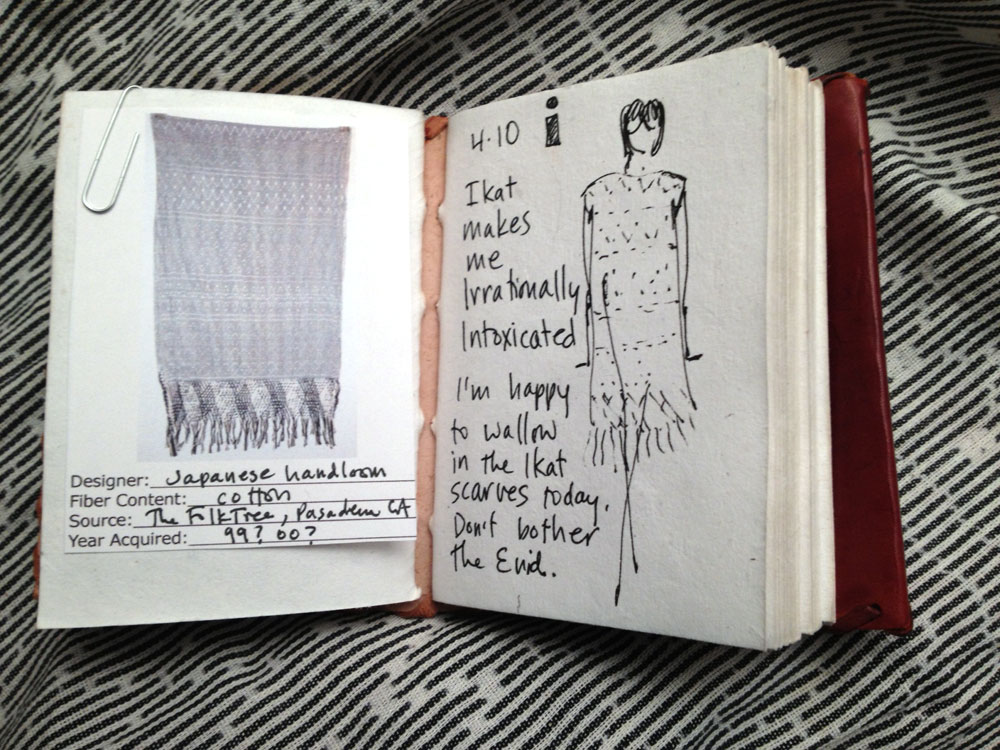 Designer: Japanese handloom
Fiber Content: cotton
Source: The FolkTree, Pasadena CA
Year Acquired: 99? 00?
4.10 i
Ikat
makes
me
Irrationally
Intoxicated
I'm happy
to wallow
in the Ikat
scarves today.
Don't bother
the Enid.